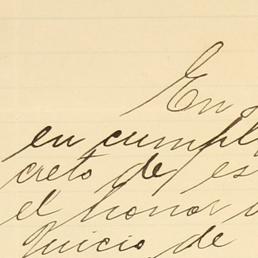 En
en cumpl
creto de es
el honor
juicio de